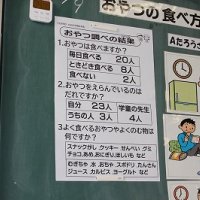 おやつの食べ方
おやつ調べの結果
1.おやつは食べますか?
毎日食べる 20人
ときどき食べる 8人
食べない 2人
2.おやつをえらんでいるのは
だれですか?
自分 23人
学童の先生
うちの人 3人
4人
3よく食べるおやつやよくのむ物は
何ですか?
スナックがし クッキー せんべい グミ
チョコ,あめ,おにぎり,ほしいも など
むぎちゃ 水 お茶 スポドリ たんさん
ジュース カルピス ヨーグルト など
Aたろうさ